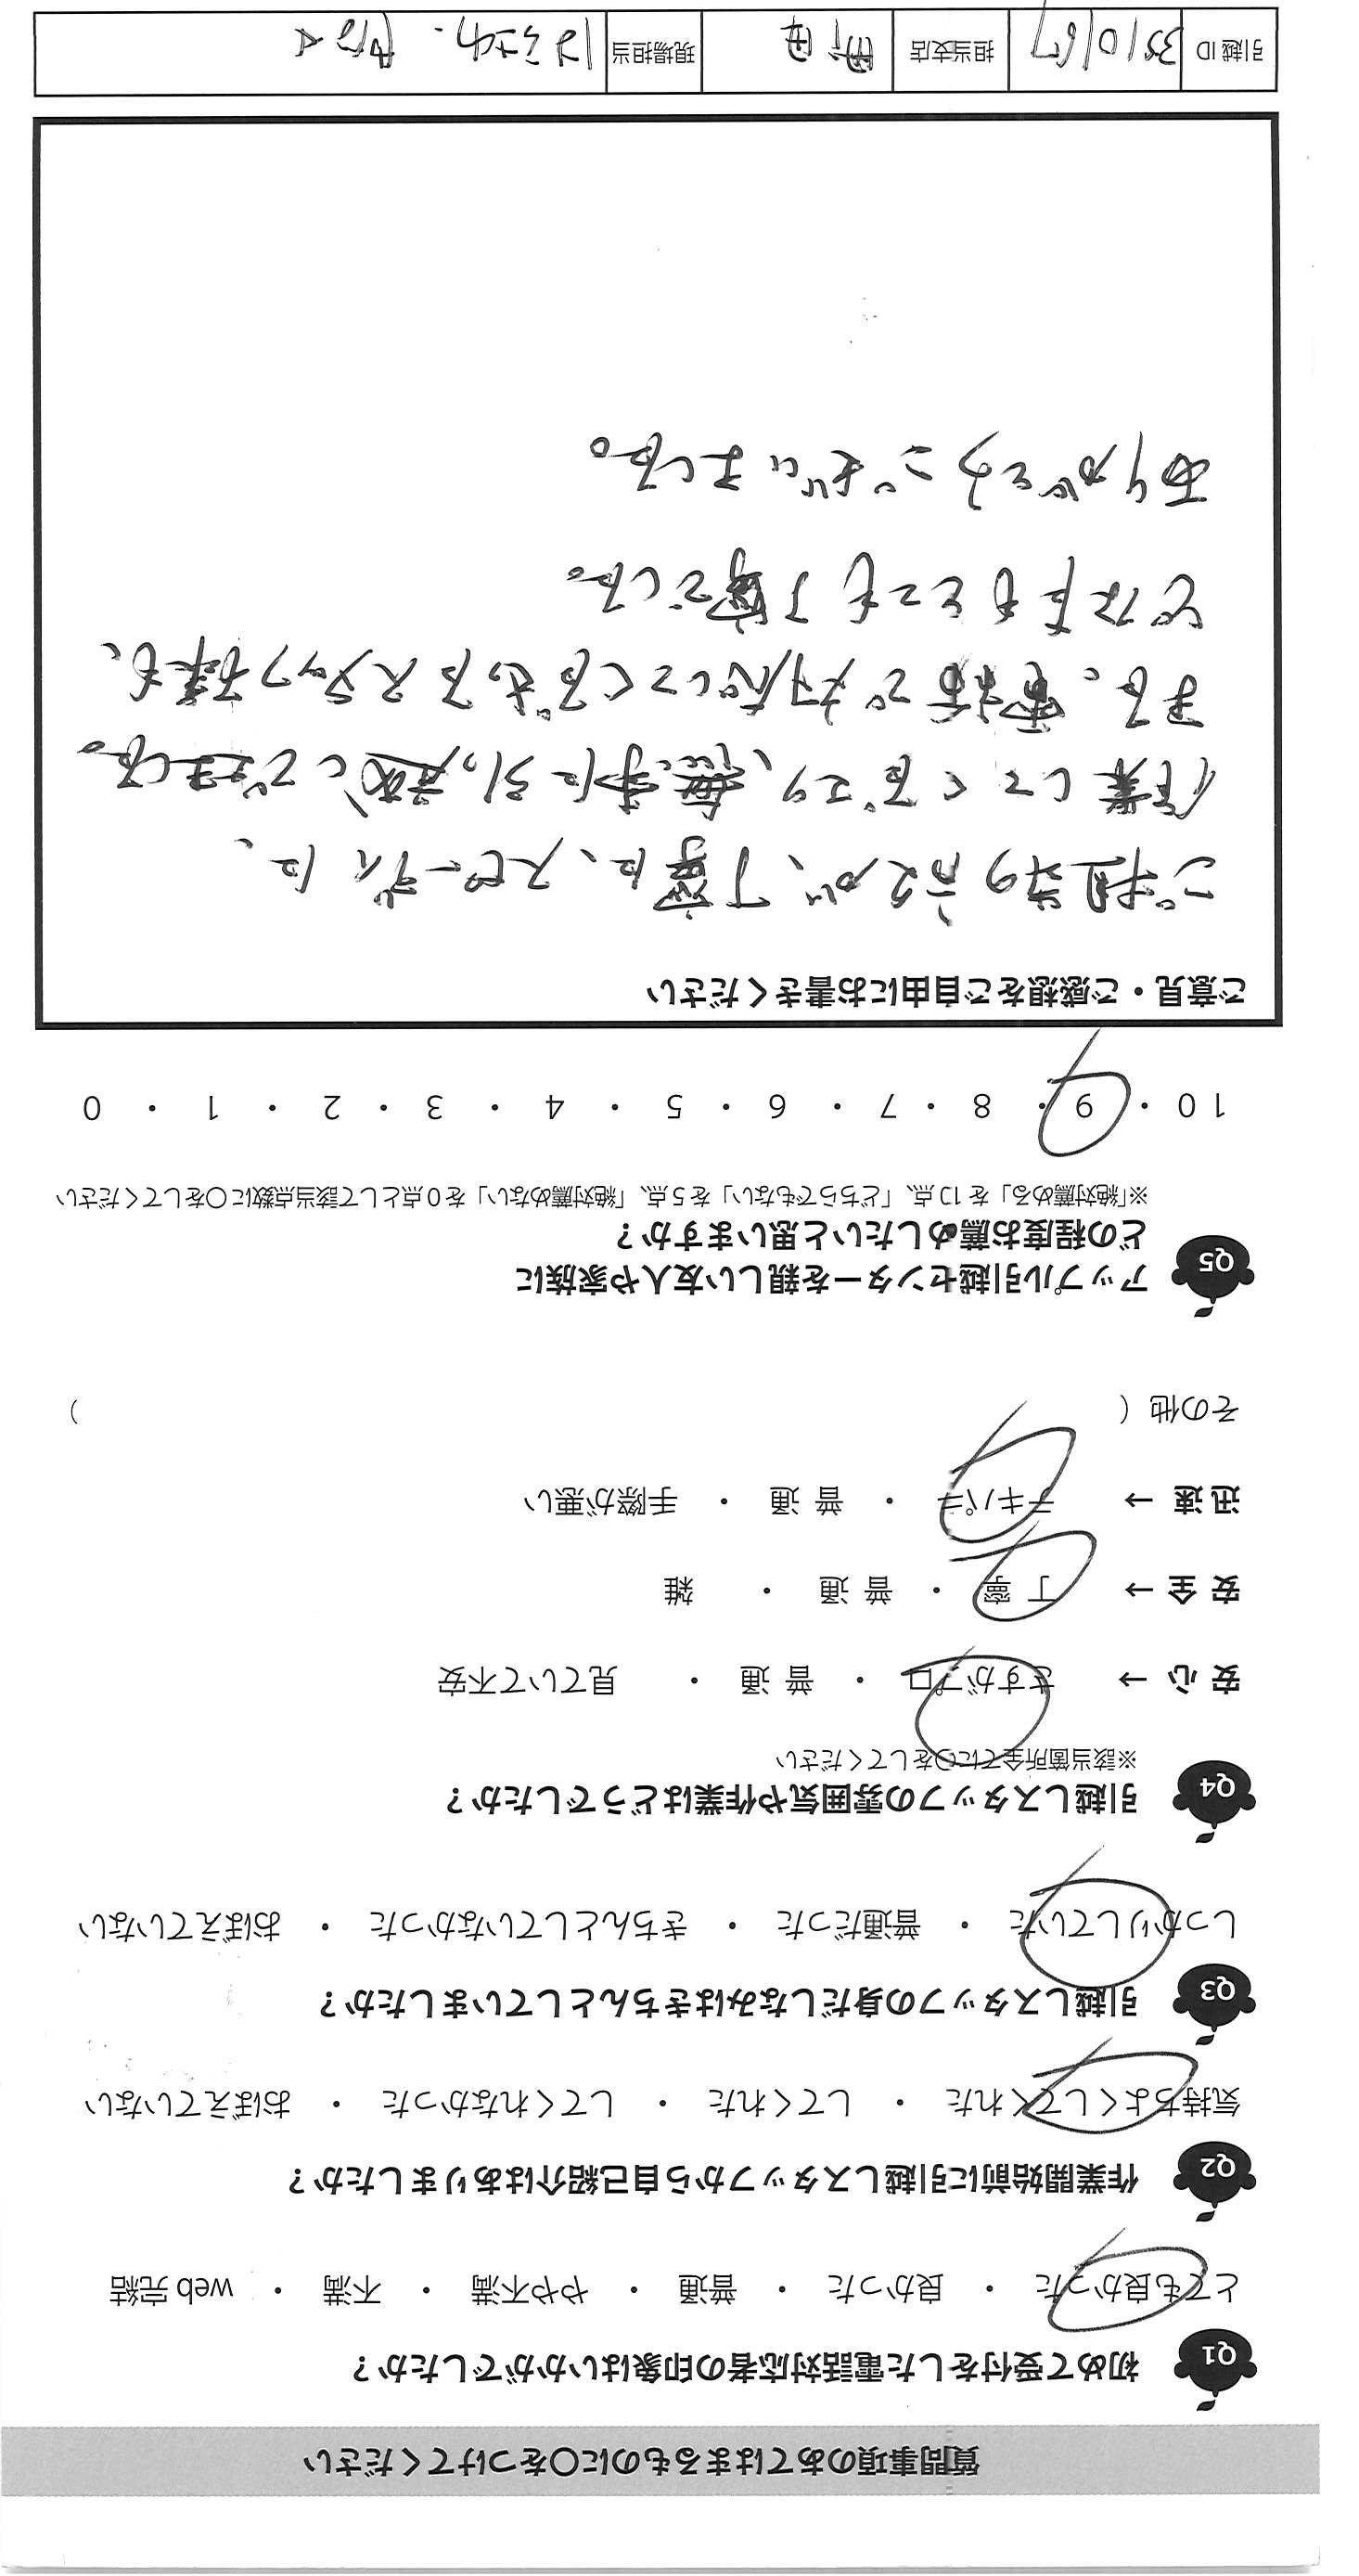 質問事項のあてはまるものに〇をつけてください
Q1 初めて受付をした電話対応者の印象はいかがでしたか？
とても良かった ・ 良かった ・ 普通 ・ やや不満 ・ 不満 ・ web 完結
Q2 作業開始前に引越しスタッフから自己紹介はありましたか？
気持ちよくしてくれた ・ してくれた ・ してくれなかった ・ おぼえていない
Q3 引越しスタッフの身だしなみはきちんとしていましたか？
しっかりしていた ・ 普通だった ・ きちんとしていなかった ・ おぼえていない
Q4 引越しスタッフの雰囲気や作業はどうでしたか？
※該当箇所全てに〇をしてください
安心 → さすがプロ ・ 普通 ・ 見ていて不安
安全 → 丁寧 ・ 普通 ・ 雑
迅速 → テキパキ ・ 普通 ・ 手際が悪い
その他（ ）
Q5 アップル引越センターを親しい友人や家族に
どの程度お薦めしたいと思いますか？
※「絶対薦める」を10点、「どちらでもない」を5点、「絶対薦めない」を0点として該当点数に〇をしてください
10 ・ 9 ・ 8 ・ 7 ・ 6 ・ 5 ・ 4 ・ 3 ・ 2 ・ 1 ・ 0
ご意見・ご感想をご自由にお書きください
ご担当の方が、丁寧に、スピーディに、
作業して下さり、無事に引っ越しできました。
また、電話で対応してくださったスタッフ様も、
どなたもとても丁寧でした。
ありがとうございました。
引越ID 3510167 担当支店 現場担当